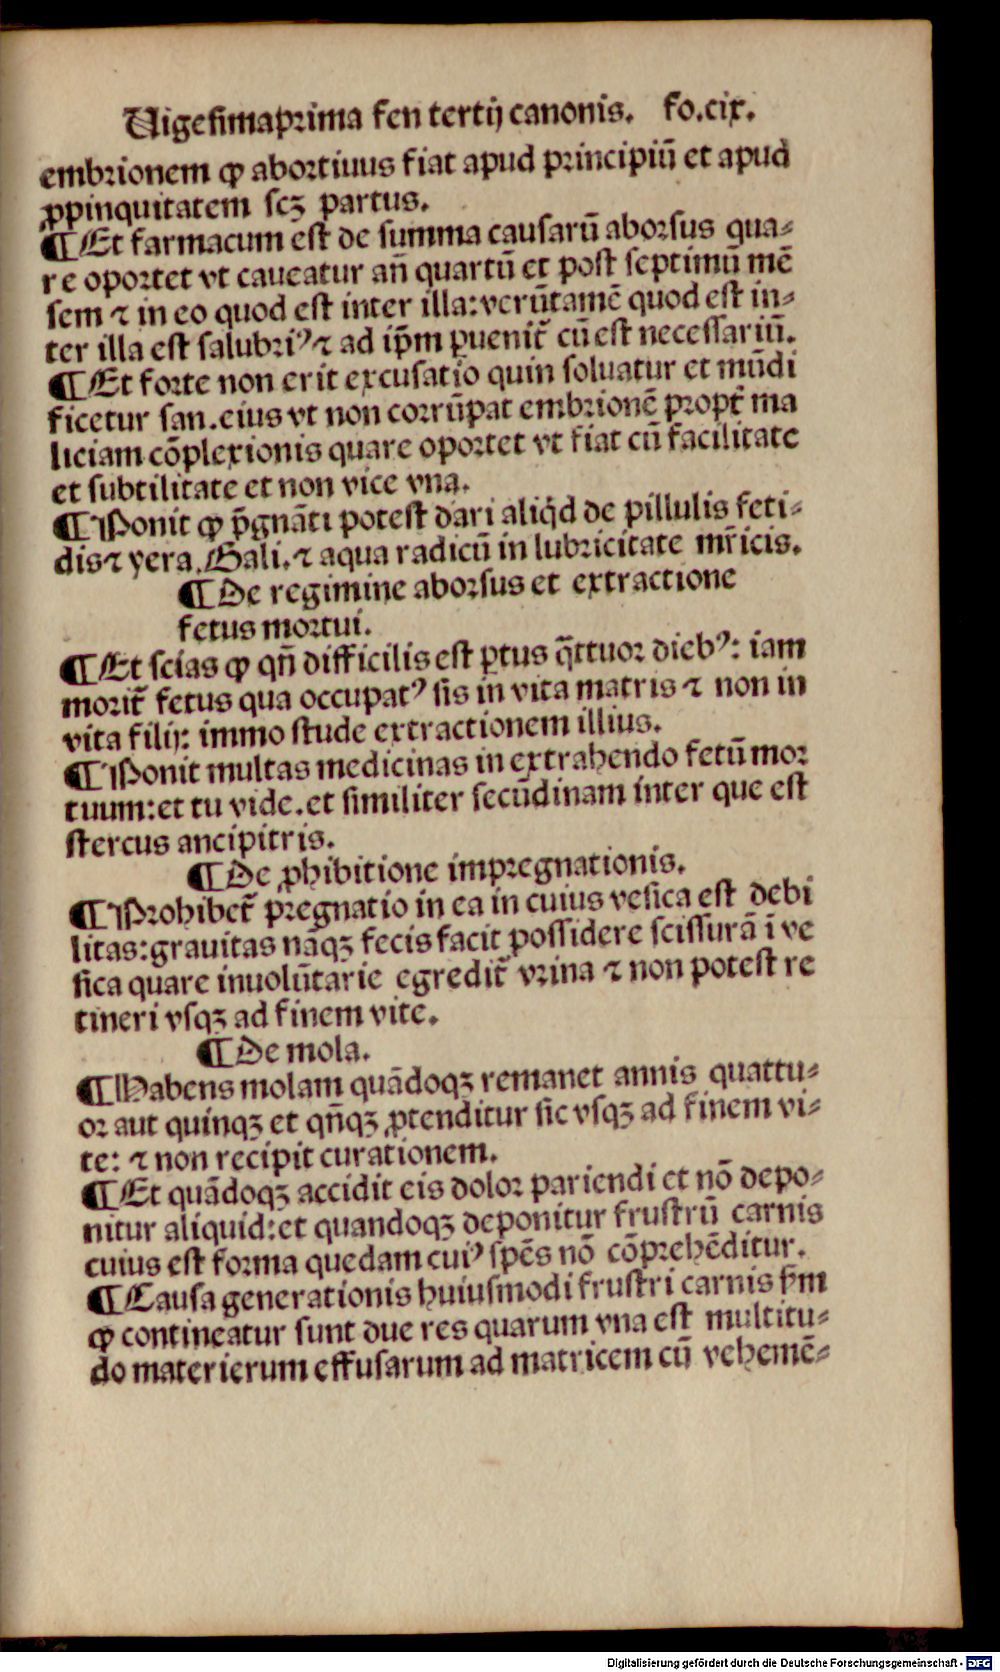 Uigesimaprima fen tertij canonis. fo.cix.
embrionem ꝙ abortiuus fiat apud principiū et apud
ꝓpinquitatem scꝫ partus.
¶ Et farmacum est de summa causarū aborsus qua-
re oportet vt caueatur añ quartū et post septimū mē
sem ⁊ in eo quod est inter illa: verūtamē quod est in-
ter illa est salubriꝰ ⁊ ad ip̄m ꝑuenit᷑ cū est necessariū.
¶ Et forte non erit excusatio quin soluatur et mūdi
ficetur san. eius vt non corrūpat embrionē propt̄ ma
liciam cōplexionis quare oportet vt fiat cū facilitate
et subtilitate et non vice vna.
¶ Ponit ꝙ p̄gnāti potest dari aliq̇d de pillulis feti-
dis ⁊ yera. Gali. ⁊ aqua radicū in lubricitate mr̄icis.
¶ De regimine aborsus et extractione
fetus mortui.
¶ Et scias ꝙ qn̄ difficilis est ꝑtus q̄ttuor diebꝰ: iam
morit᷑ fetus qua occupatꝰ sis in vita matris ⁊ non in
vita filij: immo stude extractionem illius.
¶ Ponit multas medicinas in extrahendo fetū mor
tuum: et tu vide. et similiter secūdinam inter que est
stercus ancipitris.
¶ De ꝓhibitione impregnationis.
¶ Prohibet᷑ pregnatio in ea in cuius vesica est debi
litas: grauitas nāqꝫ fecis facit possidere scissurā ī ve
sica quare inuolūtarie egredit᷑ vrina ⁊ non potest re
tineri vsqꝫ ad finem vite.
¶ De mola.
¶ Habens molam quādoqꝫ remanet annis quattu-
or aut quinqꝫ et qn̄qꝫ ꝓtenditur sic vsqꝫ ad finem vi-
te: ⁊ non recipit curationem.
¶ Et quādoqꝫ accidit eis dolor pariendi et nō depo-
nitur aliquid: et quandoqꝫ deponitur frustrū carnis
cuius est forma quedam cuiꝰ spēs nō cōprehēditur.
¶ Causa generationis huiusmodi frustri carnis s̄m
ꝙ contineatur sunt due res quarum vna est multitu-
do materierum effusarum ad matricem cū vehemē-
Digitalisierung gefördert durch die Deutsche Forschungsgemeinschaft - DFG